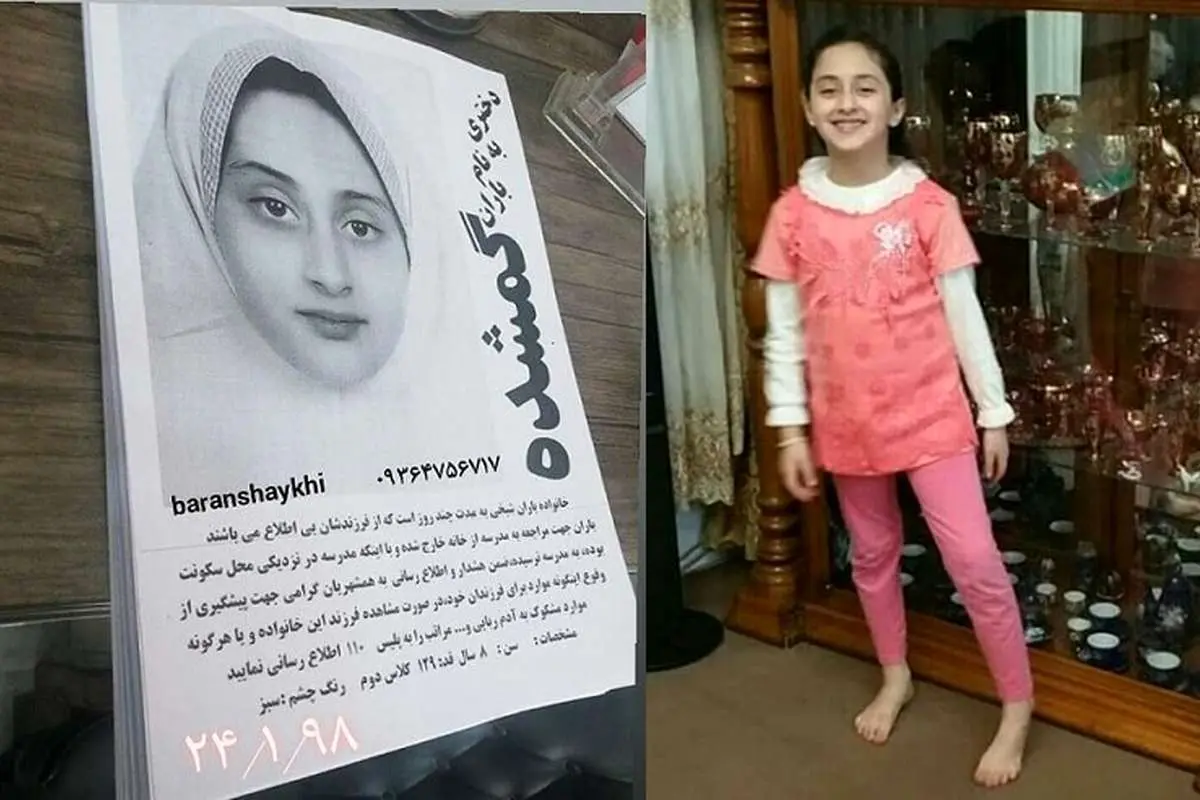 دختری به نام باران
گمشده
baranshaykhi ۰۹۳۶۴۷۵۶۷۱۷
خانواده باران شیخی به مدت چند روز است که از فرزندشان بی اطلاع می باشند
باران جهت مراجعه به مدرسه از خانه خارج شده و با اینکه مدرسه در نزدیکی محل سکونت
بوده، به مدرسه نرسیده،ضمن هشدار و اطلاع رسانی به همشهریان گرامی جهت پیشگیری از
وقوع اینگونه موارد برای فرزندان خود،در صورت مشاهده فرزند این خانواده و یا هرگونه
موارد مشکوک به آدم ربایی و... مراتب را به پلیس ۱۱۰ اطلاع رسانی نمایید
مشخصات : سن : ۸ سال قد: ۱۲۹ کلاس دوم رنگ چشم :سبز
۲۴/۱/۹۸